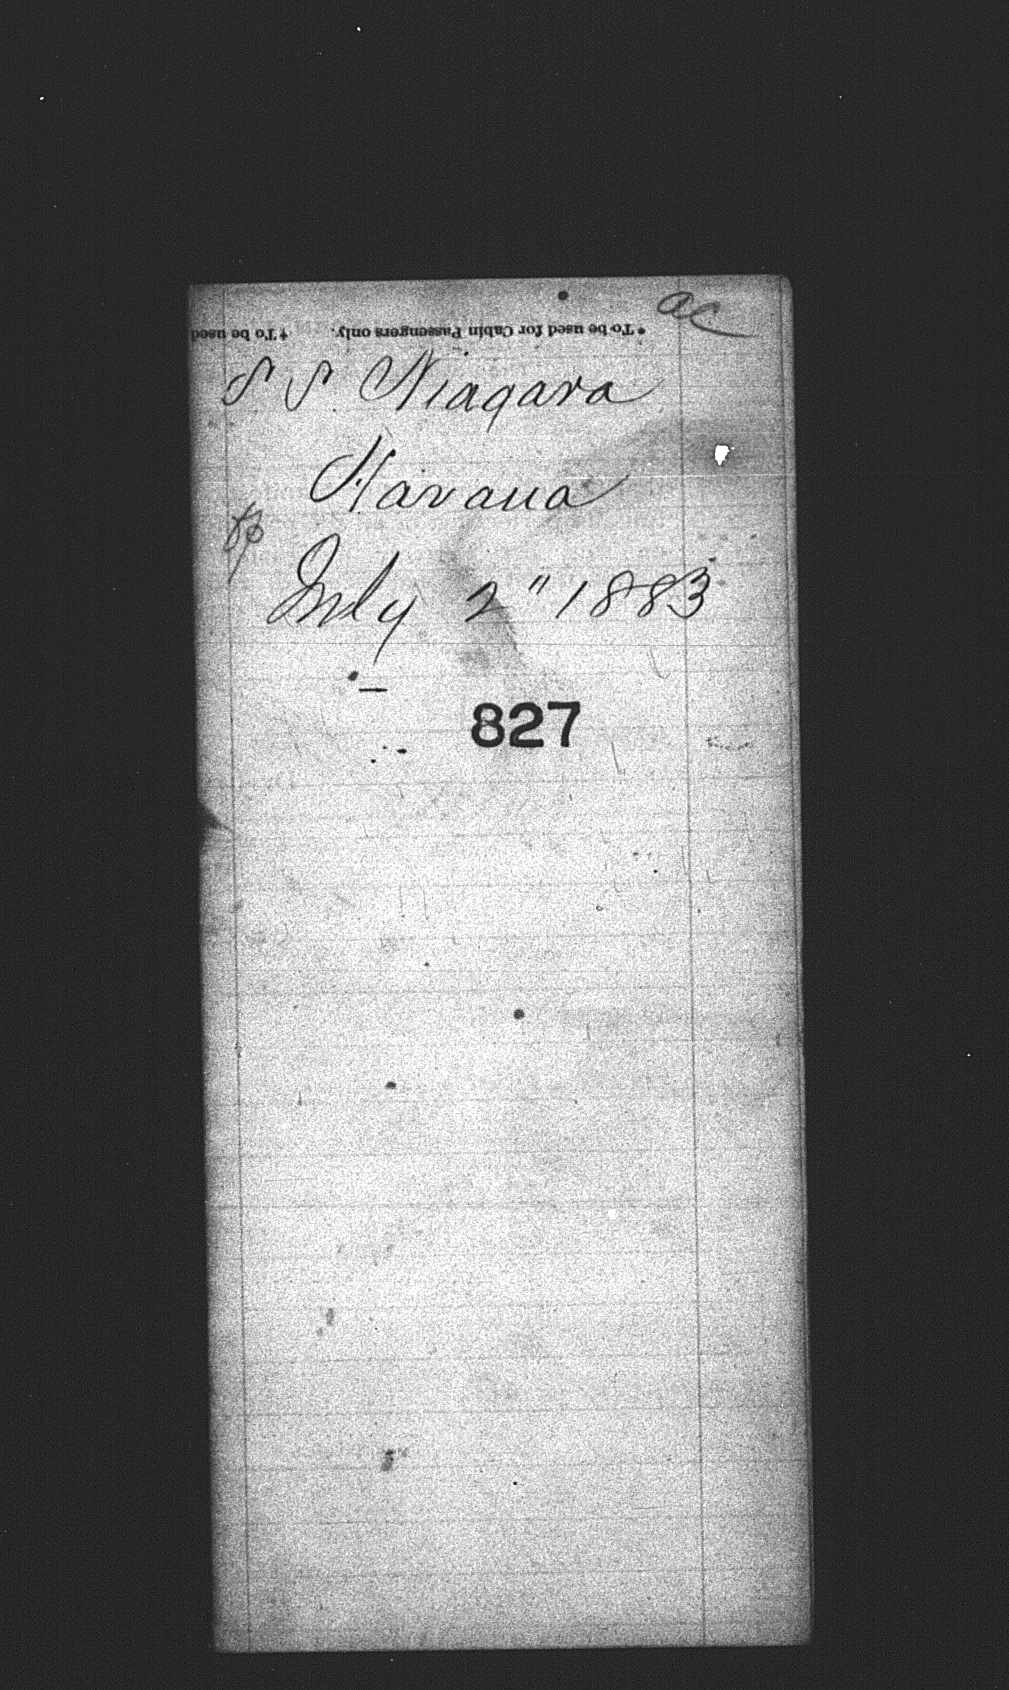 ac
* To be used for Cabin Passengers only. † To be used
S S Niagara
Havana
July 2" 1883
827